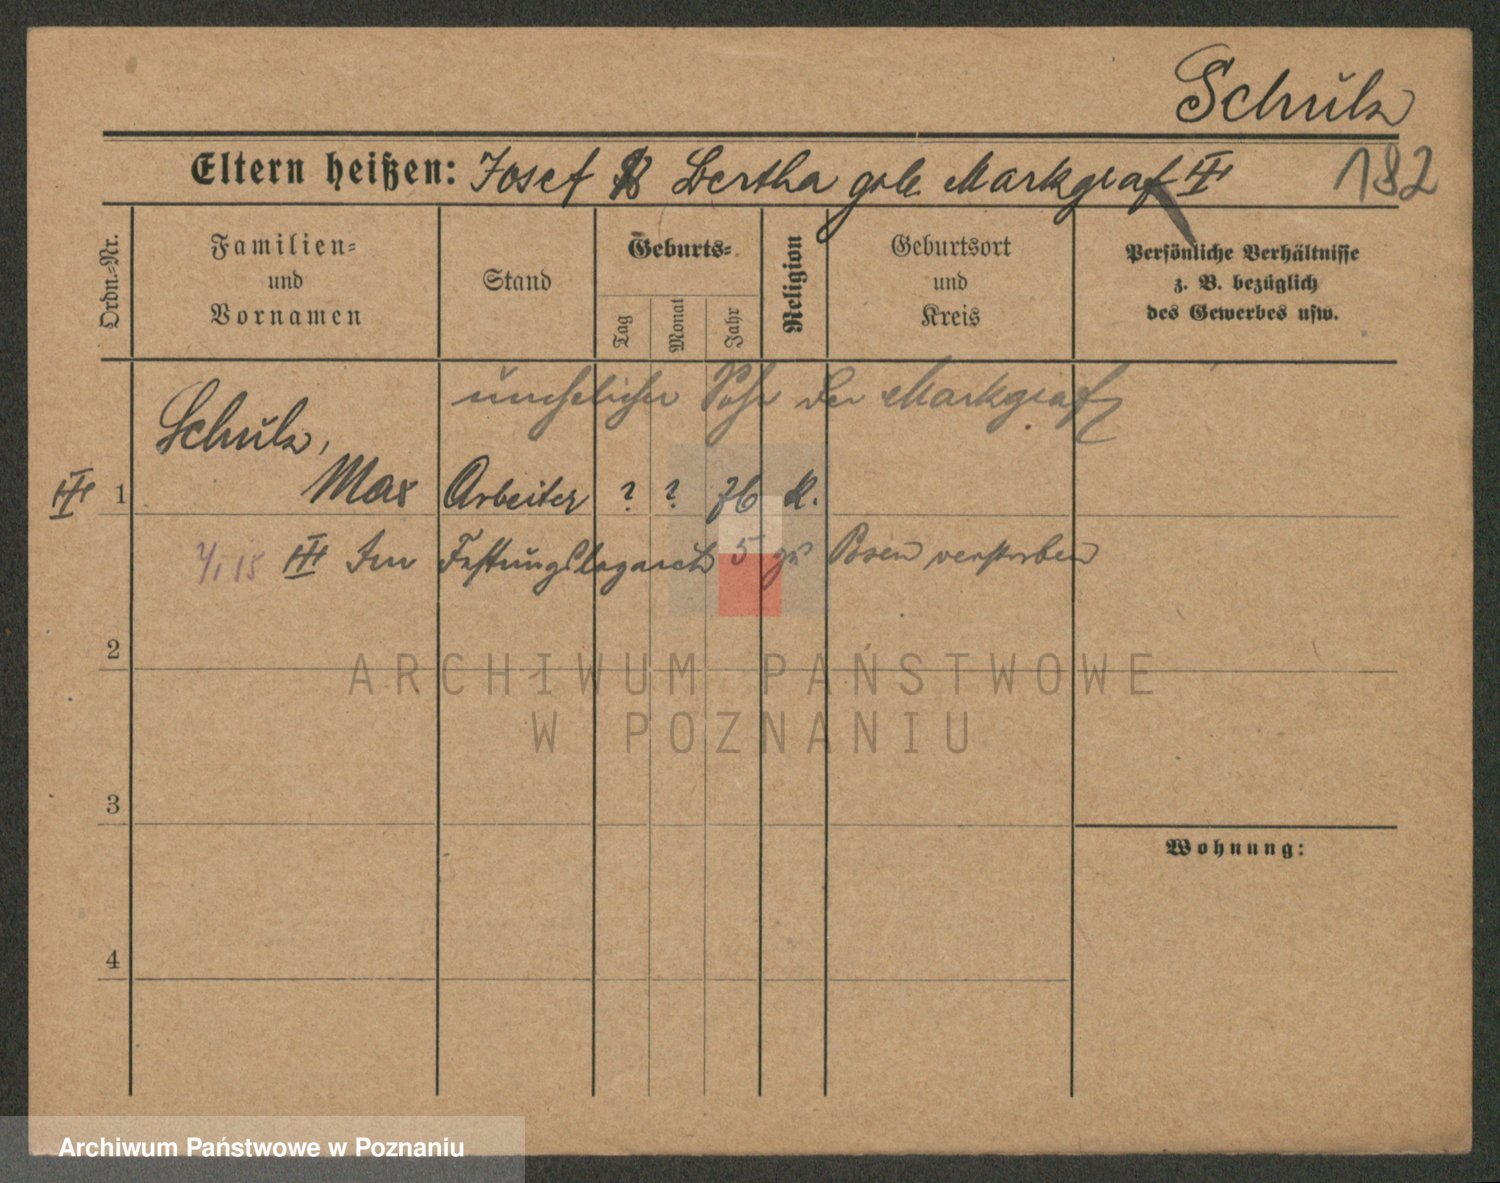 Schulz
Eltern heißen: Josef Bertha geb. Markgraf III 182
Ordn.=Nr.
Familien=
und
Vornamen
Stand
Geburts=
Tag
Monat
Jahr
Religion
Geburtsort
und
Kreis
Persönliche Verhältnisse
z. B. bezüglich
des Gewerbes usw.
unehelicher Sohn der Markgraf
Schulz,
III 1 Max Arbeiter ? ? 76 K.
III Im Festungslazareth 5 zu Posen verstorben
2
3
4
Wohnung:
ARCHIWUM PAŃSTWOWE
W POZNANIU
Archiwum Państwowe w Poznaniu